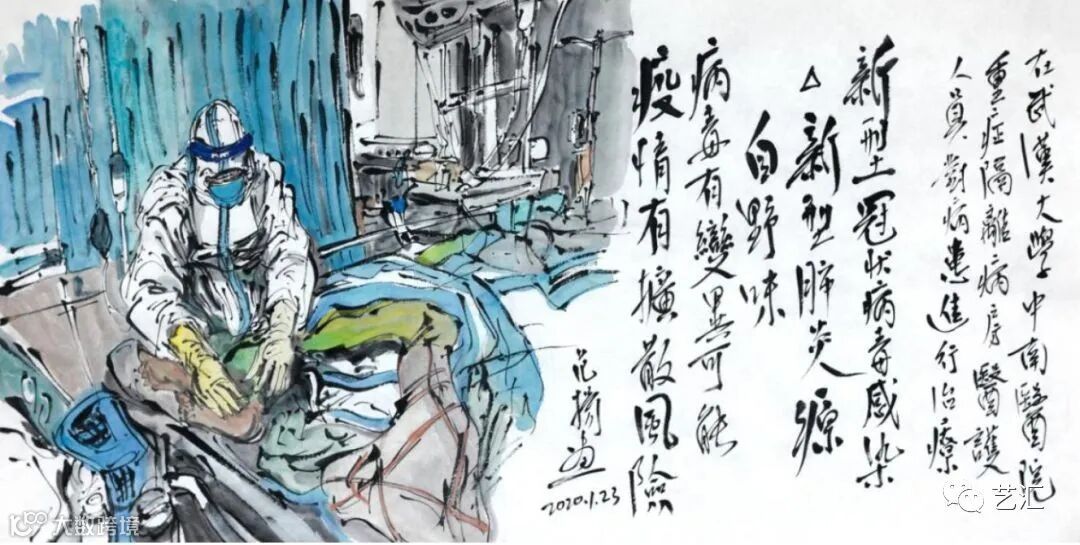 在武漢大學中南醫院
重症隔離病房醫護
人員對病患進行治療
新型冠状病毒感染
△新型肺炎源
自野味
病毒有變異可能
疫情有擴散風險
范揚画
2020.1.23
大数跨境
艺汇